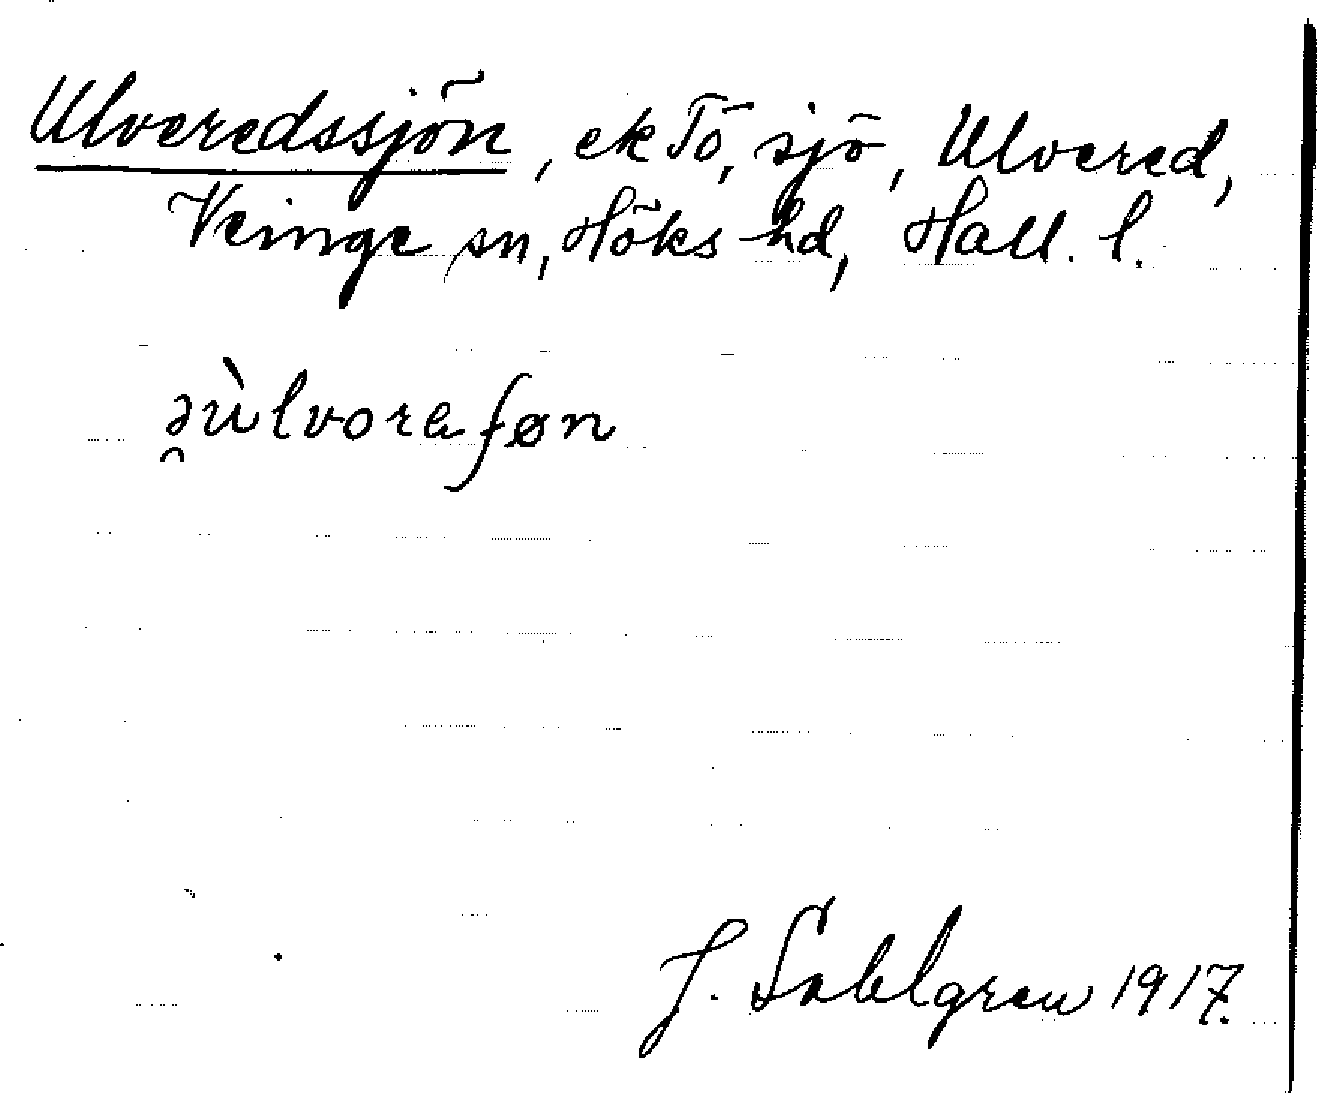 Ulveredssjön, ek Tö, sjö, Ulvered,
Veinge sn, Höks hd, Hall. l.
ə̯ùlvoraʃøn
J. Sahlgren 1917.